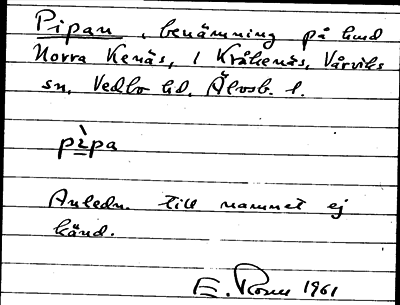 Pipan, benämning på hmd
Norra Kenäs, 1 Kråkenäs, Vårviks
sn, Vedbo hd, Älvsb. l.
pìpa
Anledn. till namnet ej
känd.
E. Rosen 1961